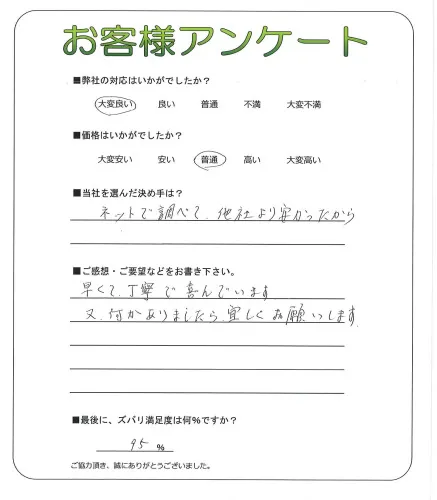 お客様アンケート
■弊社の対応はいかがでしたか？
大変良い 良い 普通 不満 大変不満
■価格はいかがでしたか？
大変安い 安い 普通 高い 大変高い
■当社を選んだ決め手は？
ネットで調べて、他社より安かったから
■ご感想・ご要望などをお書き下さい。
早くて、丁寧で喜んでいます
又、何かありましたら、宜しくお願いします。
■最後に、ズバリ満足度は何％ですか？
95 ％
ご協力頂き、誠にありがとうございました。